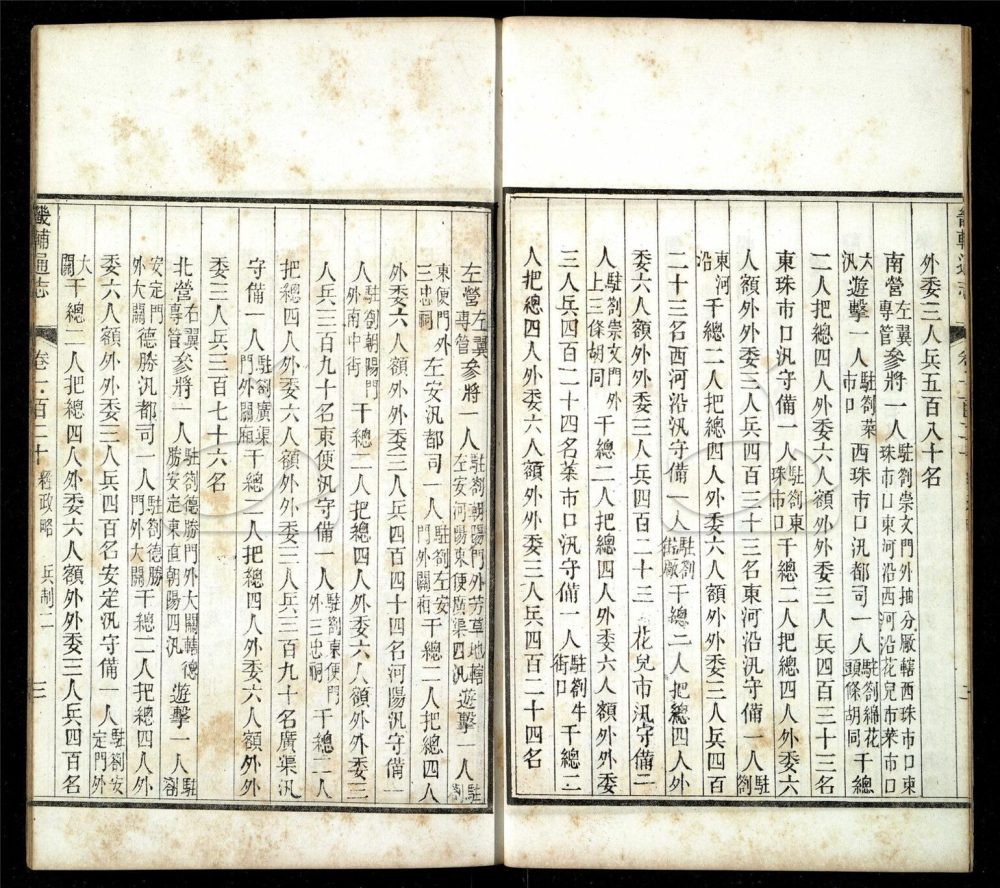 外委三人兵五百八十名
南營左翼專管參將一人駐劄崇文門外抽分厰轄西珠市口東珠市口東河沿西河沿花兒市菜市口
六汛遊擊一人駐劄菜市口西珠市口汛都司一人駐劄綿花頭條胡同千總
二人把總四人外委六人額外外委三人兵四百三十三名
東珠市口汛守備一人駐劄東珠市口千總二人把總四人外委六
人額外外委三人兵四百三十三名東河沿汛守備一人駐劄
東河沿千總二人把總四人外委六人額外外委三人兵四百
二十三名西河沿汛守備一人駐劄千總二人把總四人外
委六人額外外委三人兵四百二十三 花兒市汛守備二
人駐劄崇文門外上三條胡同千總二人把總四人外委六人額外外委
三人兵四百二十四名菜市口汛守備一人駐劄牛街口千總二
人把總四人外委六人額外外委三人兵四百二十四名
左營左翼專管參將一人駐劄朝陽門外芳草地轄左安河陽東便廣渠四汛遊擊一人駐劄
東便門外三忠祠左安汛都司一人駐劄左安門外關廂千總二人把總四人
外委六人額外外委三人兵四百四十四名河陽汛守備一
人駐劄朝陽門外南中街千總二人把總四人外委六人額外外委三
人兵三百九十名東便汛守備一人駐劄東便門外三忠祠千總二人
把總四人外委六人額外外委三人兵三百九十名廣渠汛
守備一人駐劄廣渠門外關廂千總一人把總四人外委六人額外外
委三人兵三百七十六名
北營右翼專管參將一人駐劄德勝門外大關轄德勝安定東直朝陽四汛遊擊一人駐劄
安定門外大關德勝汛都司一人駐劄德勝門外大關千總二人把總四人外
委六人額外外委三人兵四百名安定汛守備一人駐劄安定門外
大關千總二人把總四人外委六人額外外委三人兵四百名
畿輔通志 卷一百二十 經政略 兵制一 三